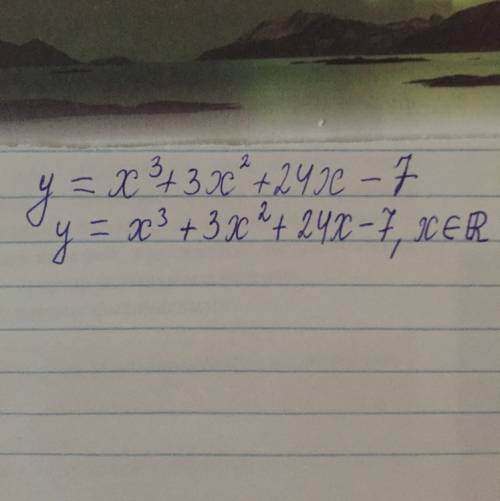 y = x³ + 3x² + 24x - 7
y = x³ + 3x² + 24x - 7, x ∈ ℝ